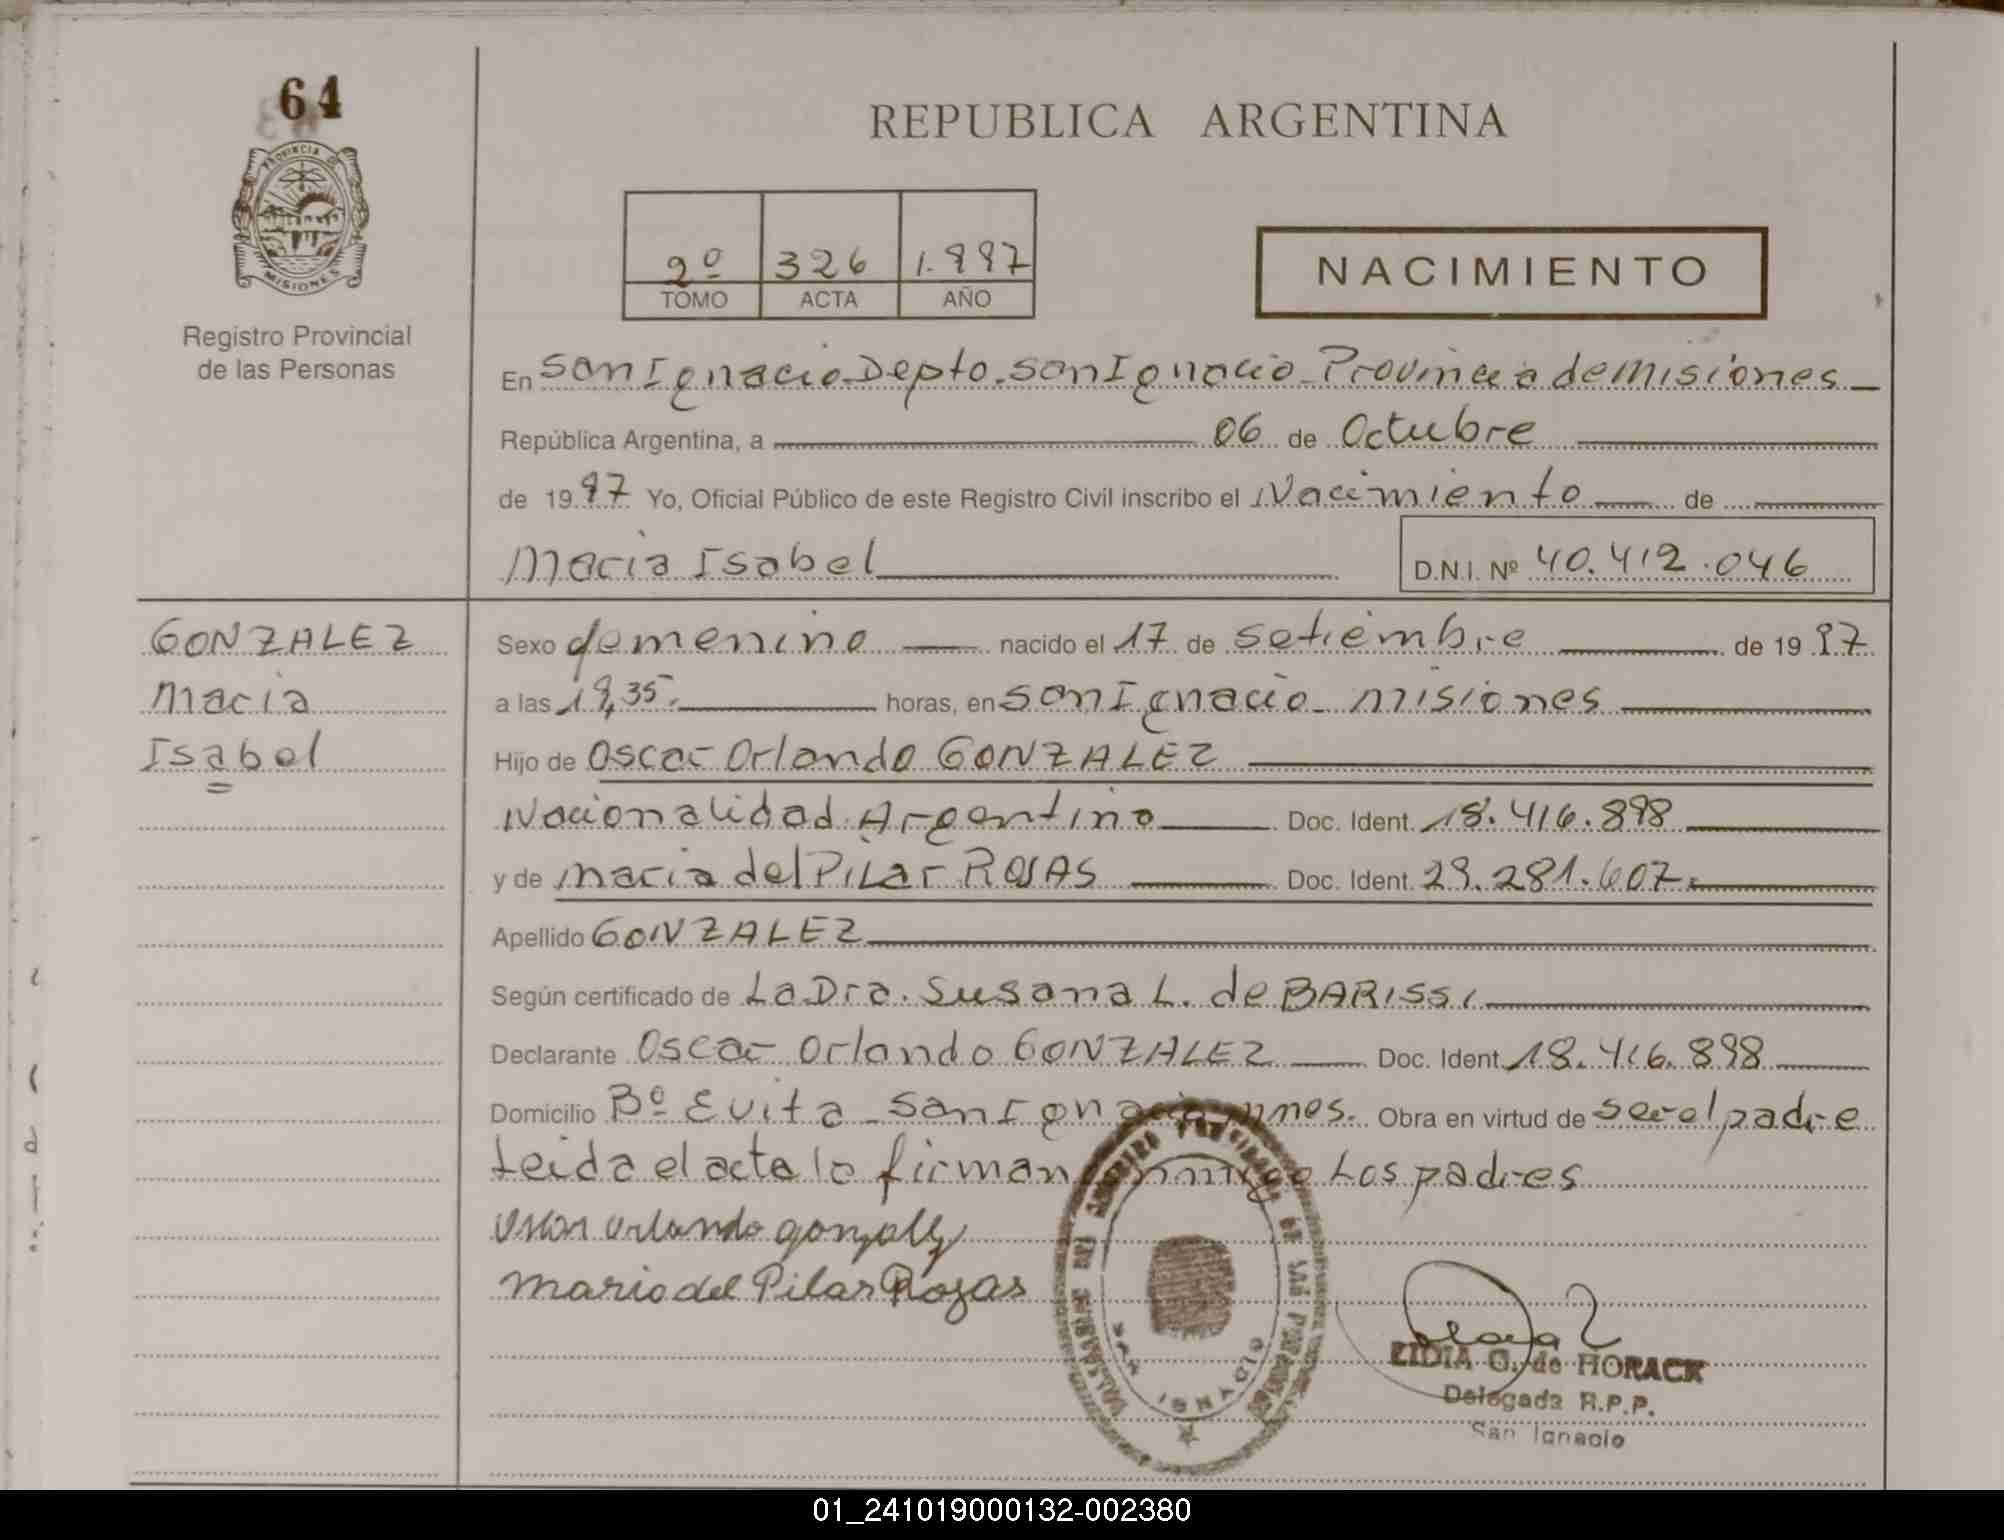 64
REPUBLICA ARGENTINA
PROVINCIA DE
MISIONES
Registro Provincial
de las Personas
2º 326 1.997
TOMO ACTA AÑO
NACIMIENTO
En San Ignacio Depto. San Ignacio - Provincia de Misiones
República Argentina, a 06 de Octubre
de 1997 Yo, Oficial Público de este Registro Civil inscribo el Nacimiento de
Maria Isabel D.N.I. Nº 40.412.046
GONZALEZ
Maria
Isabel
Sexo femenino nacido el 17 de Setiembre de 1997
a las 19,35. horas, en San Ignacio - Misiones
Hijo de Oscar Orlando GONZALEZ
Nacionalidad Argentino Doc. Ident. 18.416.898
y de Maria del Pilar ROSAS Doc. Ident. 29.281.607
Apellido GONZALEZ
Según certificado de La Dra. Susana L. de BARISSI
Declarante Oscar Orlando GONZALEZ Doc. Ident. 18.416.898
Domicilio Bº Evita - San Ignacio mnes. Obra en virtud de ser el padre
Leida el acta lo firman conmigo Los padres
Oscar Orlando gonzalez
Maria del Pilar Rozas
SAN IGNACIO
LIDIA G. de HORACK
Delegada R.P.P.
San Ignacio
01_241019000132-002380